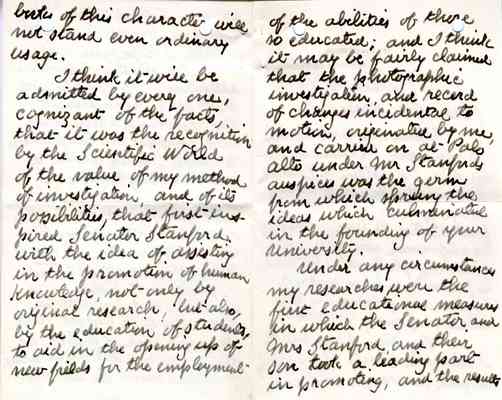 of this character will
not stand even ordinary
usage.
I think it will be
admitted by every one,
cognizant of the facts,
that it was the recognition
by the Scientific World
of the value of my method
of investigation, and of its
possibilities, that first ins-
pired Senator Stanford
with the idea of assisting
in the promotion of human
Knowledge, not only by
original research, but also,
by the education of students,
to aid in the opening up of
new fields for the employment
of the abilities of those
so educated; and I think
it may be fairly claimed
that the photographic
investigation and record
of changes incidental to
motion, originated by me,
and carried on at Palo
Alto under Mr Stanfords
auspices was the germ
from which sprung the
ideas which culminated
in the founding of your
University.
Under any circumstances
my researches were the
first educational measures
in which the Senator and
Mrs Stanford and their
son took a leading part
in promoting, and the results